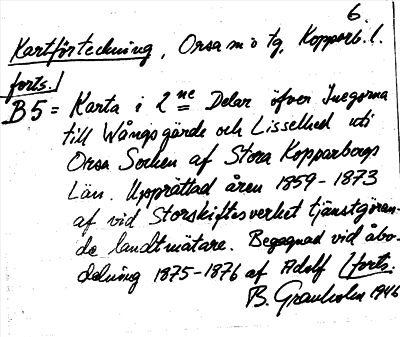 6.
Kartförteckning, Orsa m o tg, Kopparb. l.
forts./
B5 = Karta i 2ne Delar öfver Inegorna
till Wångsgärde och Lisselhed uti
Orsa Socken af Stora Kopparbergs
Län. Upprättad åren 1859-1873
af vid Storskiftesverket tjänstgöran-
de landtmätare. Begagnad vid åbo-
delning 1875-1876 af Adolf /forts.
B. Granholm 1946